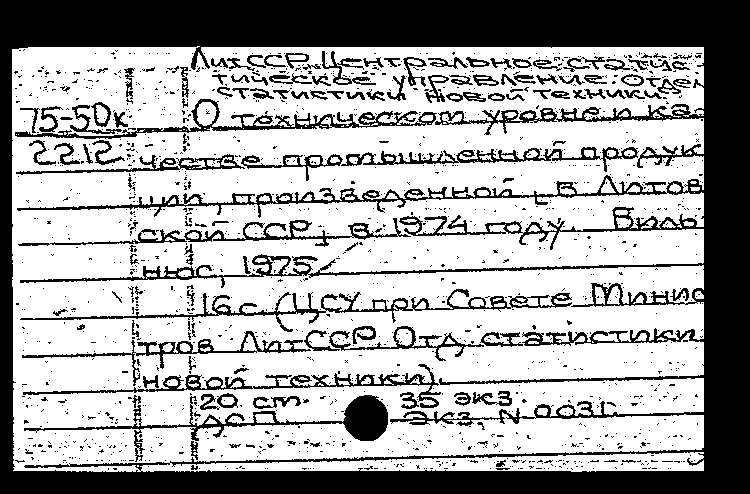 ЛитССР. Центральное статис
тическое управление. Отдел
статистики новой техники.
75-50к О техническом уровне и ка
2212 честве промышленной продук
ции, произведенной [в Литов
ской ССР] в 1974 году. Виль
нюс, 1975
16 с. (ЦСУ при Совете Минис
тров ЛитССР. Отд. статистики
новой техники).
20 см. 35 экз.
ДСП. Экз. N 0031.